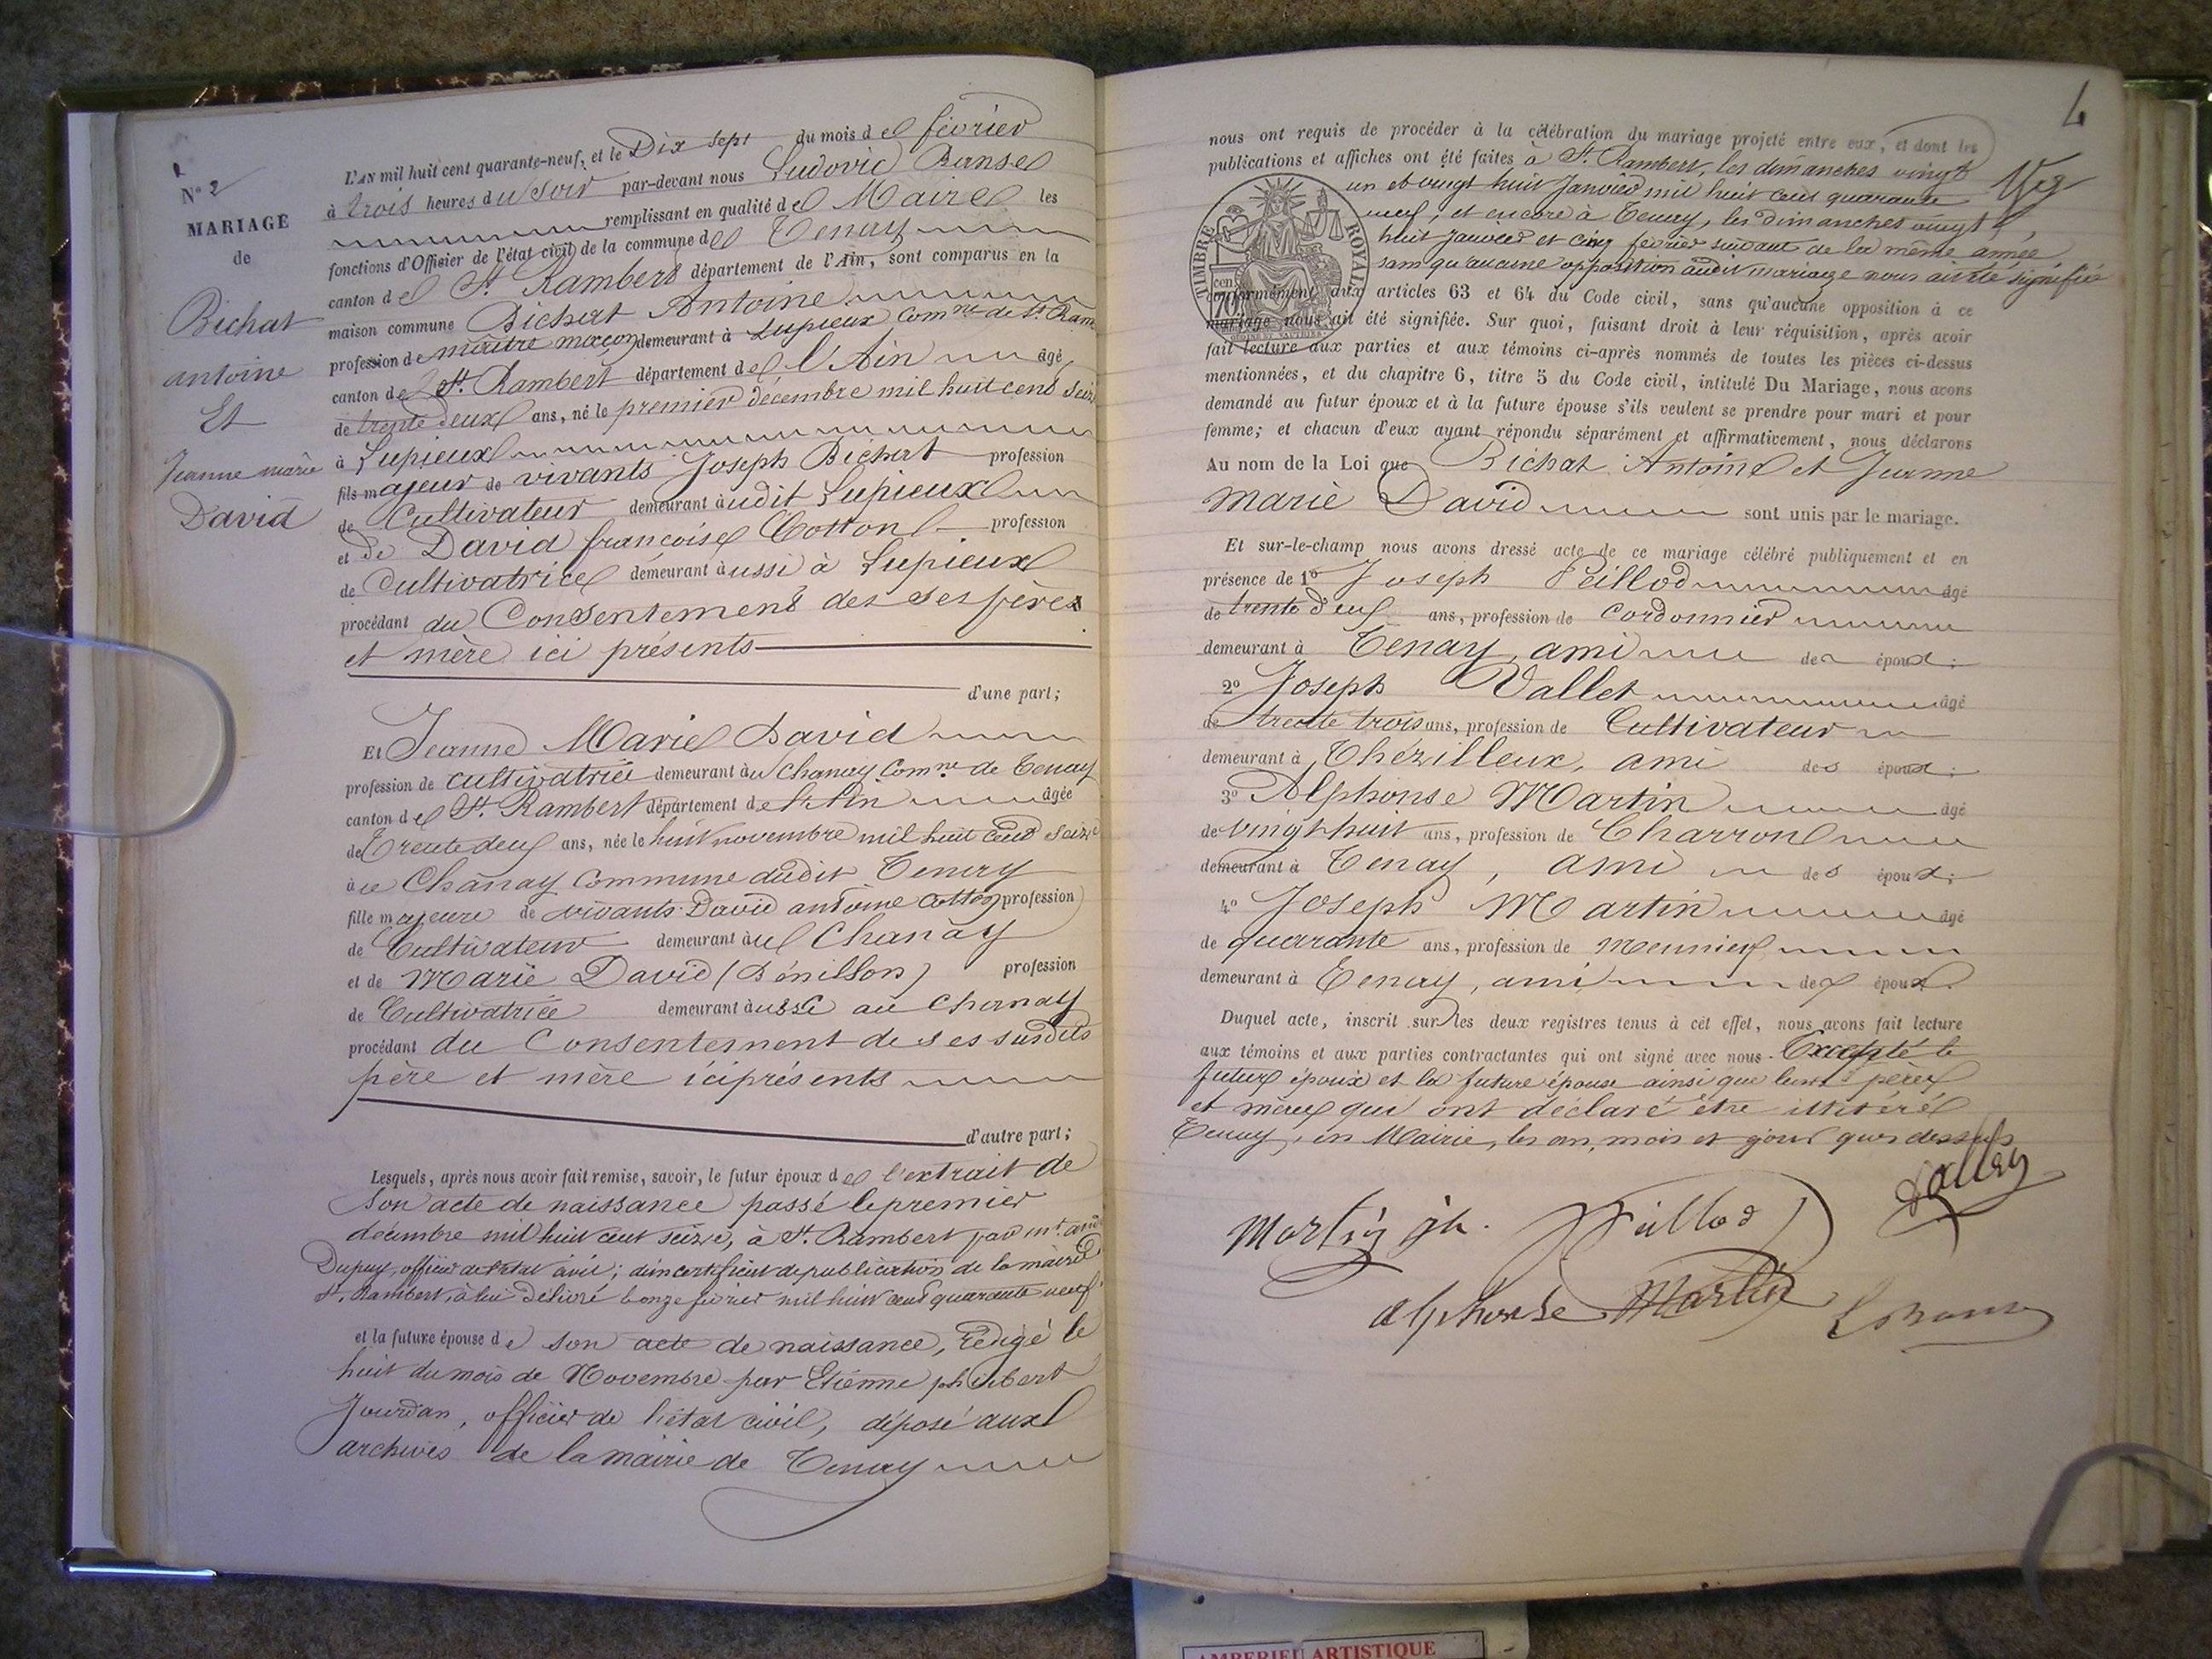 N° 2
MARIAGE
de
Bichat
antoine
Et
Jeanne marie
David
L'AN mil huit cent quarante-neuf, et le Dix sept du mois de février
à trois heures du soir par-devant nous Ludovic
remplissant en qualité de Maire les
fonctions d'Officier de l'état civil de la commune de Tenay
canton de St. Rambert département de l'Ain, sont comparus en la
maison commune Bichat Antoine
profession de maître maçon demeurant à Lupieux Comne de St Ram
canton de St. Rambert département de l'Ain âgé
de trente deux ans, né le premier décembre mil huit cent seize
à Lupieux
fils majeur de vivants Joseph Bichat profession
de Cultivateur demeurant audit Lupieux
et de David françoise Cotton profession
de Cultivatrice demeurant aussi à Lupieux
procédant du Consentement des ses pères
et mère ici présents
d'une part;
Et Jeanne Marie David
profession de cultivatrice demeurant au Chanay Comne de Tenay
canton de St. Rambert département de l'Ain âgée
de Trente deux ans, née le huit novembre mil huit cent seize
au Chanay Commune dudit Tenay
fille majeure de vivants David antoine Cotton profession
de Cultivateur demeurant au Chanay
et de Marie David (Bénillon) profession
de Cultivatrice demeurant aussi au Chanay
procédant du Consentement de ses susdits
père et mère ici présents
d'autre part;
Lesquels, après nous avoir fait remise, savoir, le futur époux de l'extrait de
son acte de naissance passé le premier
décembre mil huit cent seize, à St. Rambert par mr.
Dupuy, officier de l'état civil; d'un certificat de publication de la mairie
St. Rambert, à lui délivré le onze février mil huit cent quarante neuf
et la future épouse de son acte de naissance, rédigé le
huit du mois de Novembre par Etienne philibert
Jourdan, officier de l'état civil, déposé aux
archives de la mairie de Tenay
4
nous ont requis de procéder à la célébration du mariage projeté entre eux, et dont les
publications et affiches ont été faites à St. Rambert, les dimanches vingt
un et vingt huit Janvier mil huit cent quarante
neuf; et encore à Tenay, les dimanches vingt
huit janvier et cinq février suivant de la même année
sans qu'aucune opposition audit mariage nous ait été signifiée
TIMBRE ROYAL
conformément aux articles 63 et 64 du Code civil, sans qu'aucune opposition à ce
mariage nous ait été signifiée. Sur quoi, faisant droit à leur réquisition, après avoir
fait lecture aux parties et aux témoins ci-après nommés de toutes les pièces ci-dessus
mentionnées, et du chapitre 6, titre 5 du Code civil, intitulé Du Mariage, nous avons
demandé au futur époux et à la future épouse s'ils veulent se prendre pour mari et pour
femme; et chacun d'eux ayant répondu séparément et affirmativement, nous déclarons
Au nom de la Loi que Bichat Antoine et Jeanne
Marie David sont unis par le mariage.
Et sur-le-champ nous avons dressé acte de ce mariage célébré publiquement et en
présence de 1° Joseph Peillod âgé
de trente deux ans, profession de Cordonnier
demeurant à Tenay, ami des époux;
2° Joseph Vallet âgé
de trente trois ans, profession de Cultivateur
demeurant à Thézilleux, ami des époux;
3° Alphonse Martin âgé
de vingt huit ans, profession de Charron
demeurant à Tenay, ami des époux;
4° Joseph Martin âgé
de quarante ans, profession de meunier
demeurant à Tenay, ami des époux
Duquel acte, inscrit sur les deux registres tenus à cet effet, nous avons fait lecture
aux témoins et aux parties contractantes qui ont signé avec nous. Excepté le
futur époux et la future épouse ainsi que leurs pères
et mères qui ont déclaré être illitéré
Tenay, en Mairie, les an, mois et jour que dessus
Martin jh. Peillod
alphonse Martin
AMBERIEU ARTISTIQUE